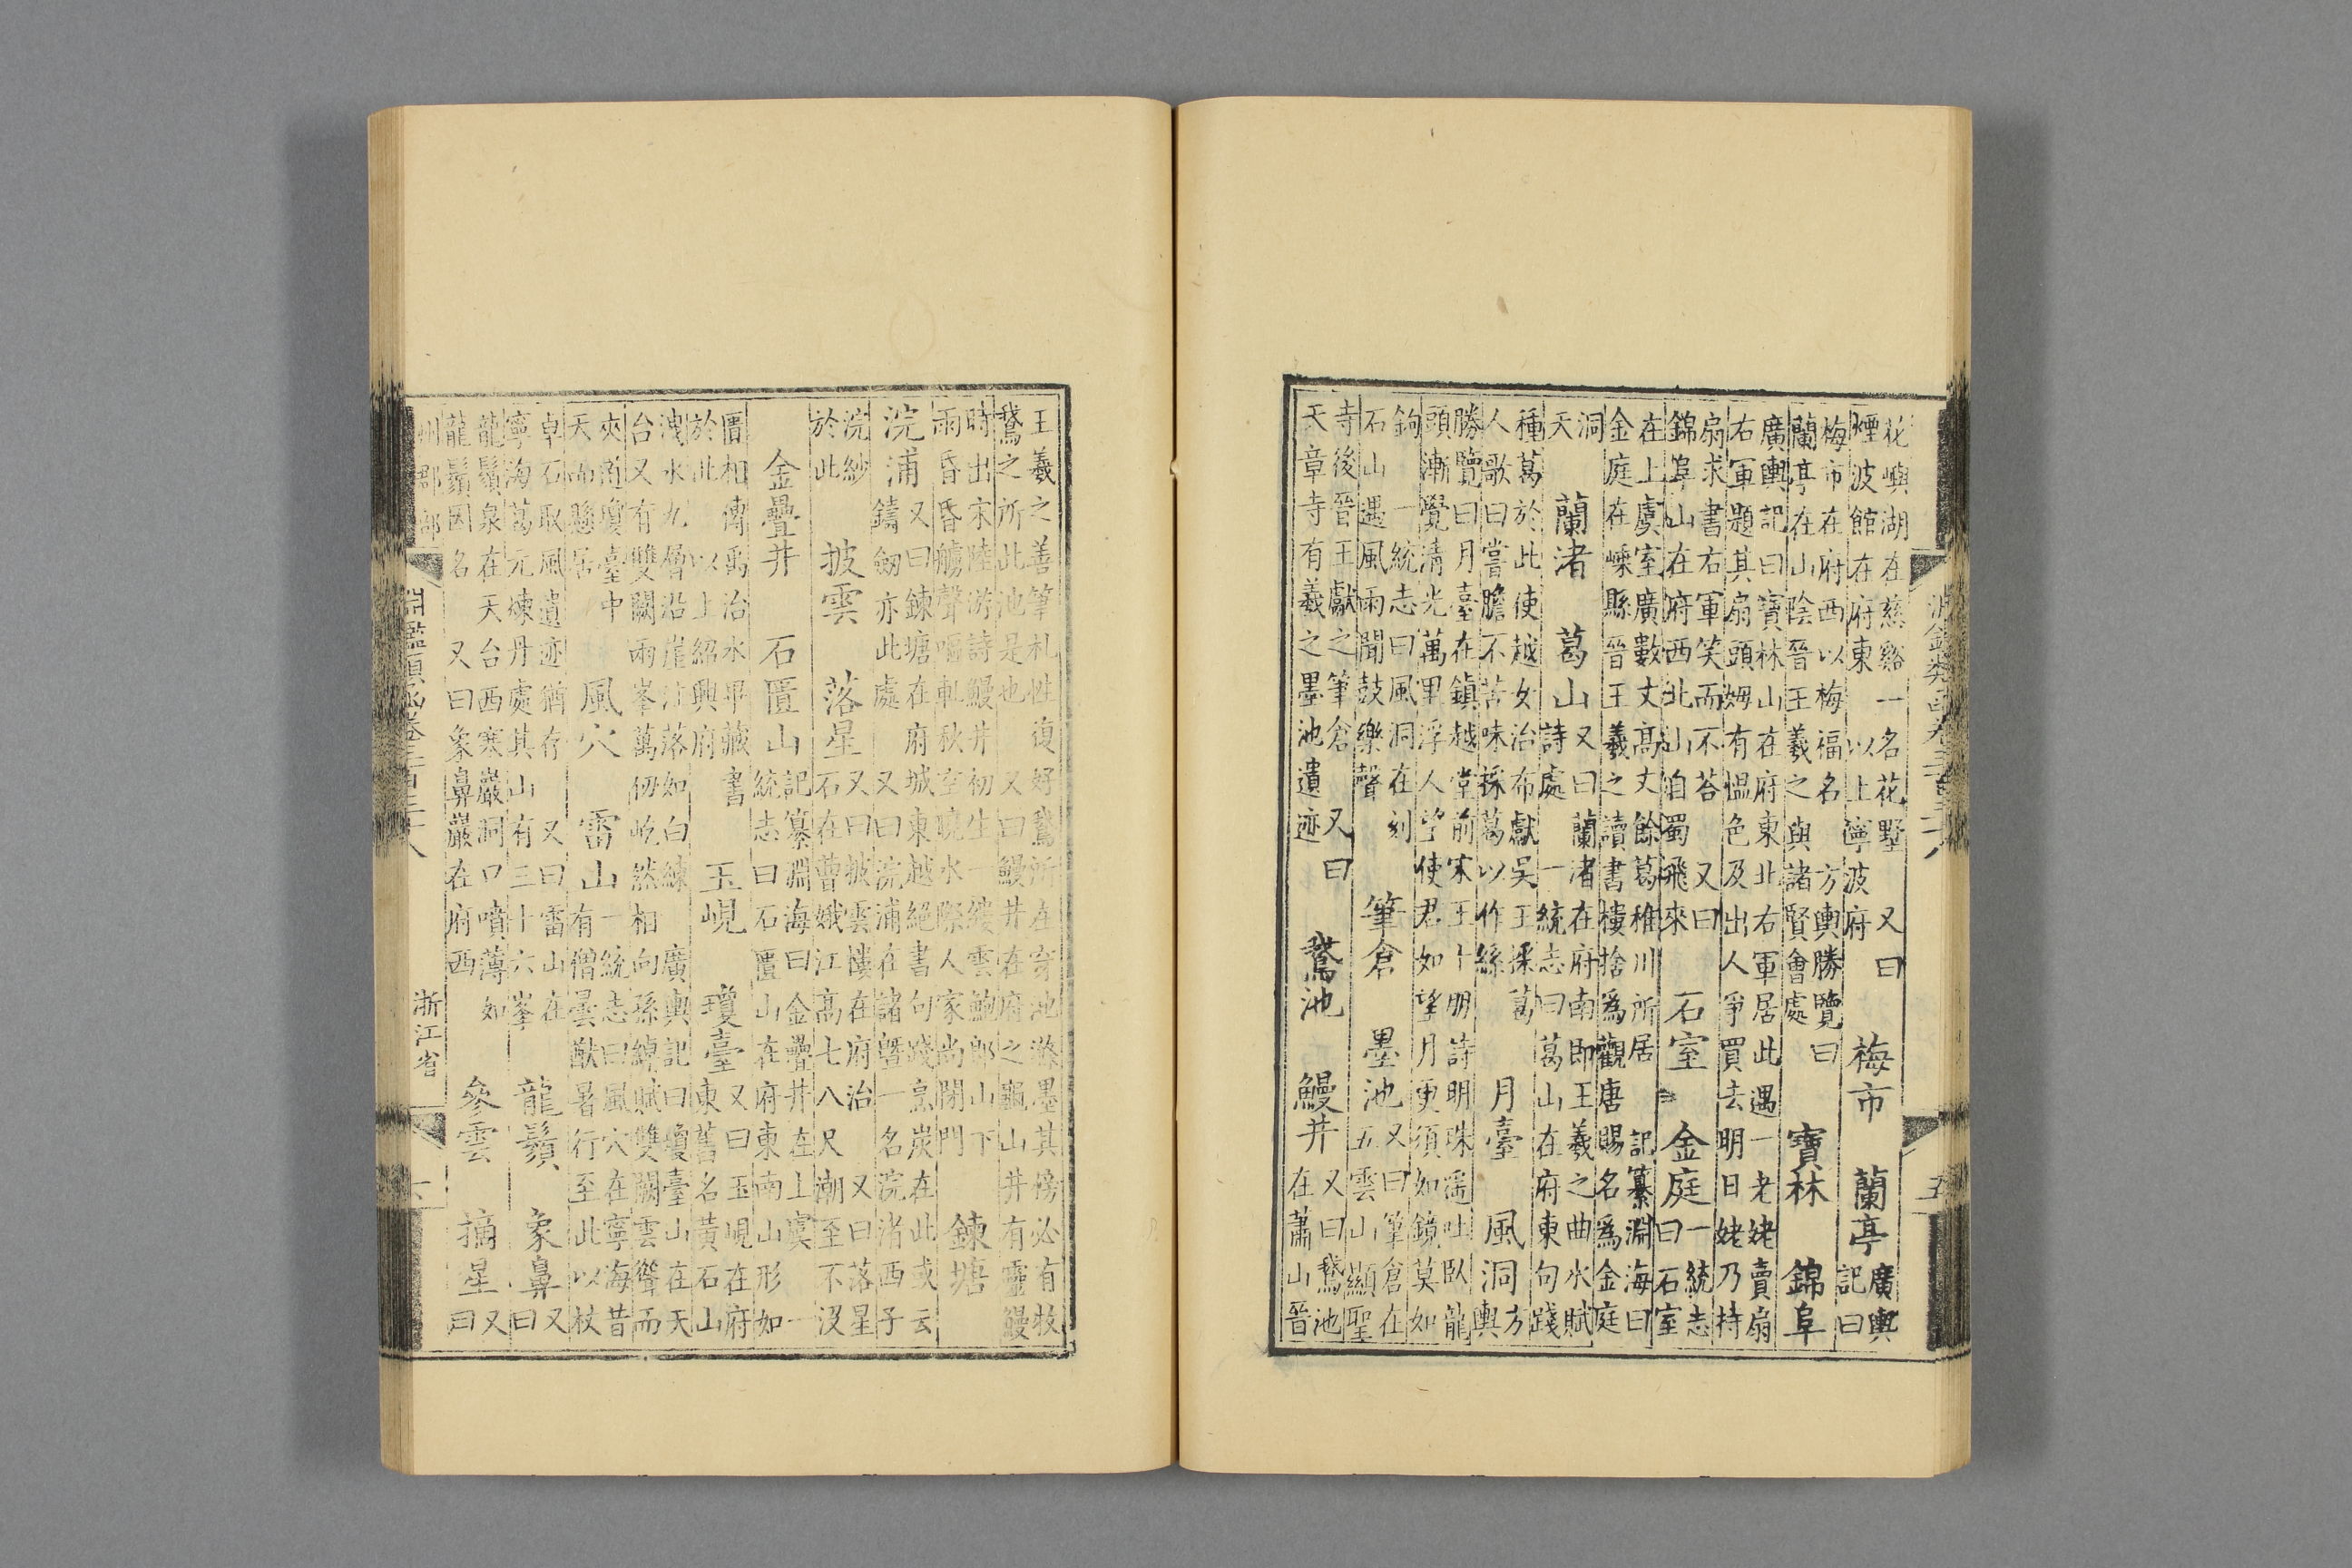 淵鑑類函卷三百三十八 五
花嶼湖在慈谿一名花墅 又曰
煙波館在府東 以上寧波府
梅市 蘭亭
廣輿
記曰
梅市在府西以梅福名 方輿勝覽曰
蘭亭在山陰晉王羲之與諸賢會處
寶林 錦阜
廣輿記曰寶林山在府東北右軍居此遇一老姥賣扇
右軍題其扇頭姆有慍色及出人爭買去明日姥乃持
扇求書右軍笑而不荅 又曰
錦阜山在府西北山自蜀飛來
石室 金庭
一統志
曰石室
在上虞室廣數丈高丈餘葛稚川所居 記纂淵海曰
金庭在嵊縣晉王羲之讀書樓捨爲觀唐賜名爲金庭
洞
天
蘭渚 葛山
又曰蘭渚在府南即王羲之曲水賦
詩處 一統志曰葛山在府東句踐
種葛於此使越女治布獻吳王採葛
人歌曰嘗膽不苦味採葛以作絲
月臺 風洞
方
輿
勝覽曰月臺在鎮越堂前宋王十朋詩明珠遥吐臥龍
頭漸覺清光萬里浮人望使君如望月更須如鏡莫如
鉤 一統志曰風洞在剡
石山遇風雨聞鼓樂聲
筆倉 墨池
又曰筆倉在
五雲山顯聖
寺後晉王獻之筆倉 又曰
天章寺有羲之墨池遺迹
鵞池 鰻井
又曰鵞池
在蕭山晉
王羲之善筆札性復好鵞所在穿池滌墨其傍必有牧
鵞之所此池是也 又曰鰻井在府之龜山井有靈鰻
時出宋陸游詩鰻井初生一縷雲鮑郎山下
雨昏昏艣聲嘔軋秋空曉水際人家尚閉門
鍊塘
浣浦
又曰鍊塘在府城東越絕書句踐烹炭在此或云
鑄劔亦此處 又曰浣浦在諸曁一名浣渚西子
浣紗
於此
披雲 落星
又曰披雲樓在府治 又曰落星
石在曹娥江高七八尺潮至不沒
金疊井 石匱山
記纂淵海曰金疊井在上虞 一
統志曰石匱山在府東南山形如
匱相傳禹治水畢藏書
於此 以上紹興府
玉峴 瓊臺
又曰玉峴在府
東舊名黃石山
洩水九層沿崖落如白練 廣輿記曰瓊臺山在天
台又有雙闕兩峯萬仞屹然相向孫綽賦雙闕雲聳而
夾道瓊臺中
天而懸居
風穴 雷山
一統志曰風穴在寧海昔
有僧曇猷暑行至此以杖
卓石取風遺迹猶存 又曰雷山在
寧海葛元煉丹處其山有三十六峯
龍鬚 象鼻
又
曰
龍鬚泉在天台西寒巖洞口噴薄如
龍鬚因名 又曰象鼻巖在府西
參雲 摘星
又
曰
州郡部 淵鑑類函卷三百三十八 浙江省 六